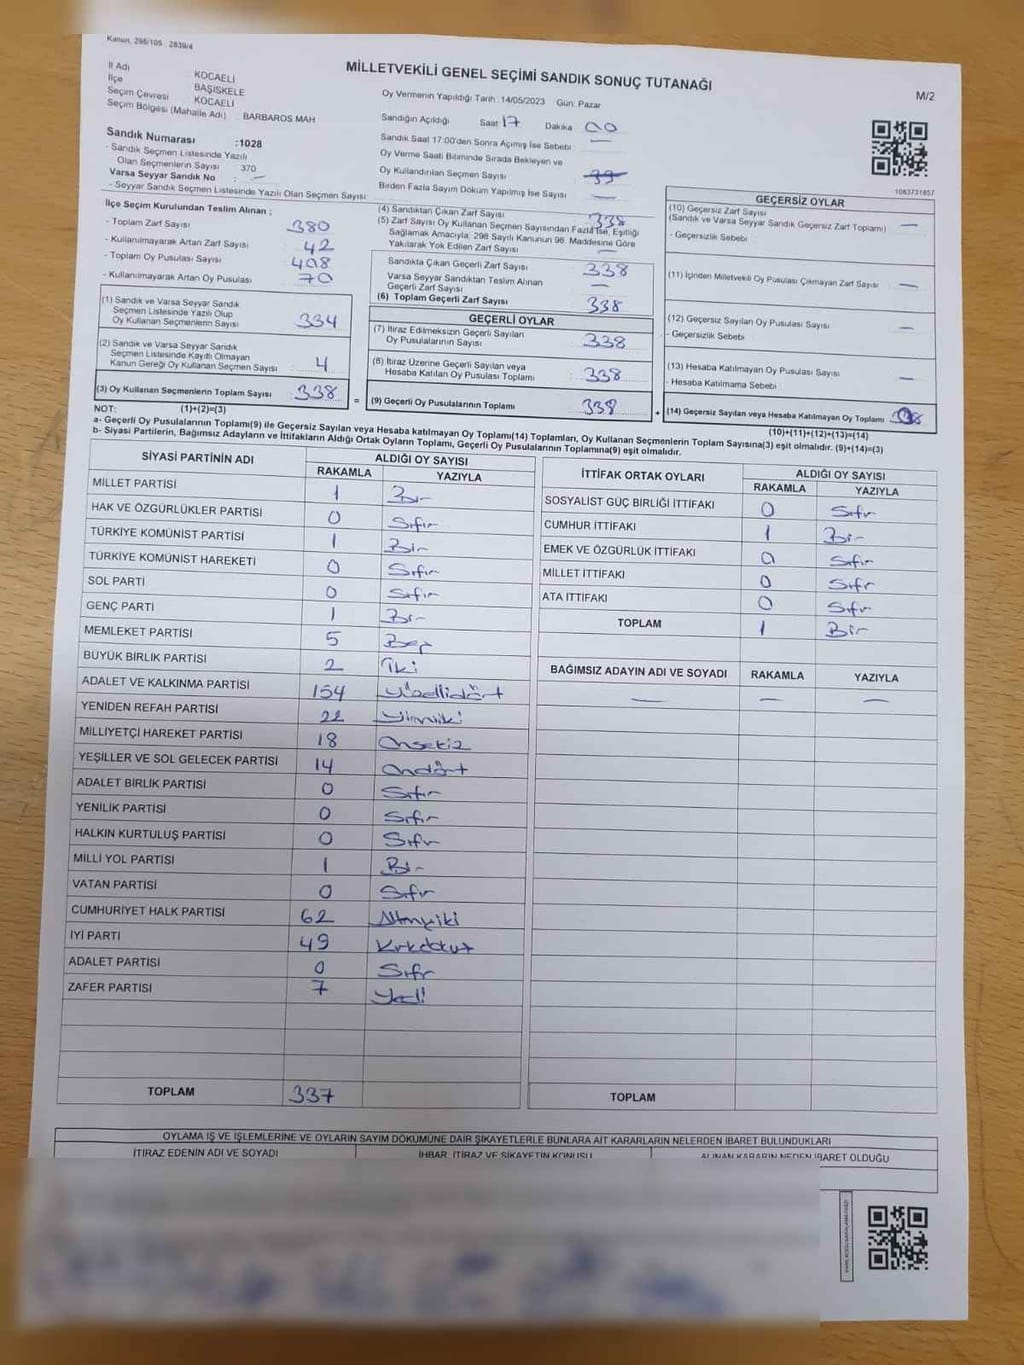 Kanun, 298/105 , 2839/4
MİLLETVEKİLİ GENEL SEÇİMİ SANDIK SONUÇ TUTANAĞI
M/2
İl Adı : KOCAELİ
İlçe : BAŞİSKELE
Seçim Çevresi : KOCAELİ
Seçim Bölgesi (Mahalle Adı) : BARBAROS MAH
Sandık Numarası :1028
- Sandık Seçmen Listesinde Yazılı
Olan Seçmenlerin Sayısı : 370
Varsa Seyyar Sandık No : —
- Seyyar Sandık Seçmen Listesinde Yazılı Olan Seçmen Sayısı:
Oy Vermenin Yapıldığı Tarih :14/05/2023 Gün: Pazar
Sandığın Açıldığı Saat 17 Dakika 00
Sandık Saat 17:00'den Sonra Açılmış İse Sebebi : —
Oy Verme Saati Bitiminde Sırada Bekleyen ve
Oy Kullandırılan Seçmen Sayısı :
Birden Fazla Sayım Döküm Yapılmış İse Sayısı : —
1083731857
İlçe Seçim Kurulundan Teslim Alınan ;
- Toplam Zarf Sayısı : 380
- Kullanılmayarak Artan Zarf Sayısı : 42
- Toplam Oy Pusulası Sayısı : 408
- Kullanılmayarak Artan Oy Pusulası : 70
(1) Sandık ve Varsa Seyyar Sandık
Seçmen Listesinde Yazılı Olup
Oy Kullanan Seçmenlerin Sayısı : 334
(2) Sandık ve Varsa Seyyar Sandık
Seçmen Listesinde Kayıtlı Olmayan
Kanun Gereği Oy Kullanan Seçmen Sayısı : 4
(3) Oy Kullanan Seçmenlerin Toplam Sayısı : 338
(4) Sandıktan Çıkan Zarf Sayısı : 338
(5) Zarf Sayısı Oy Kullanan Seçmen Sayısından Fazla İse, Eşitliği
Sağlamak Amacıyla; 298 Sayılı Kanunun 98. Maddesine Göre
Yakılarak Yok Edilen Zarf Sayısı : —
Sandıkta Çıkan Geçerli Zarf Sayısı : 338
Varsa Seyyar Sandıktan Teslim Alınan
Geçerli Zarf Sayısı : —
(6) Toplam Geçerli Zarf Sayısı : 338
GEÇERLİ OYLAR
(7) İtiraz Edilmeksizin Geçerli Sayılan
Oy Pusulalarının Sayısı : 338
(8) İtiraz Üzerine Geçerli Sayılan veya
Hesaba Katılan Oy Pusulası Toplamı : 338
= (9) Geçerli Oy Pusulalarının Toplamı : 338 +
GEÇERSİZ OYLAR
(10) Geçersiz Zarf Sayısı
(Sandık ve Varsa Seyyar Sandık Geçersiz Zarf Toplamı) : —
- Geçersizlik Sebebi
(11) İçinden Milletvekili Oy Pusulası Çıkmayan Zarf Sayısı : —
(12) Geçersiz Sayılan Oy Pusulası Sayısı : —
- Geçersizlik Sebebi
(13) Hesaba Katılmayan Oy Pusulası Sayısı : —
- Hesaba Katılmama Sebebi
(14) Geçersiz Sayılan veya Hesaba Katılmayan Oy Toplamı :
NOT: (1)+(2)=(3)
(10)+(11)+(12)+(13)=(14)
a- Geçerli Oy Pusulalarının Toplamı(9) ile Geçersiz Sayılan veya Hesaba katılmayan Oy Toplamı(14) Toplamları, Oy Kullanan Seçmenlerin Toplam Sayısına(3) eşit olmalıdır. (9)+(14)=(3)
b- Siyasi Partilerin, Bağımsız Adayların ve İttifakların Aldığı Ortak Oyların Toplamı, Geçerli Oy Pusulalarının Toplamına(9) eşit olmalıdır.
SİYASİ PARTİNİN ADI ALDIĞI OY SAYISI
RAKAMLA YAZIYLA
MİLLET PARTİSİ 1 Bir
HAK VE ÖZGÜRLÜKLER PARTİSİ 0 Sıfır
TÜRKİYE KOMÜNİST PARTİSİ 1 Bir
TÜRKİYE KOMÜNİST HAREKETİ 0 Sıfır
SOL PARTİ 0 Sıfır
GENÇ PARTİ 1 Bir
MEMLEKET PARTİSİ 5 Beş
BÜYÜK BİRLİK PARTİSİ 2 İki
ADALET VE KALKINMA PARTİSİ 154 Yüzellidört
YENİDEN REFAH PARTİSİ 22 Yirmiiki
MİLLİYETÇİ HAREKET PARTİSİ 18 Onsekiz
YEŞİLLER VE SOL GELECEK PARTİSİ 14 Ondört
ADALET BİRLİK PARTİSİ 0 Sıfır
YENİLİK PARTİSİ 0 Sıfır
HALKIN KURTULUŞ PARTİSİ 0 Sıfır
MİLLİ YOL PARTİSİ 1 Bir
VATAN PARTİSİ 0 Sıfır
CUMHURİYET HALK PARTİSİ 62 Altmışiki
İYİ PARTİ 49 Kırkdokuz
ADALET PARTİSİ 0 Sıfır
ZAFER PARTİSİ 7 Yedi
TOPLAM 337
İTTİFAK ORTAK OYLARI ALDIĞI OY SAYISI
RAKAMLA YAZIYLA
SOSYALİST GÜÇ BİRLİĞİ İTTİFAKI 0 Sıfır
CUMHUR İTTİFAKI 1 Bir
EMEK VE ÖZGÜRLÜK İTTİFAKI 0 Sıfır
MİLLET İTTİFAKI 0 Sıfır
ATA İTTİFAKI 0 Sıfır
TOPLAM 1 Bir
BAĞIMSIZ ADAYIN ADI VE SOYADI RAKAMLA YAZIYLA
— — —
TOPLAM
OYLAMA İŞ VE İŞLEMLERİNE VE OYLARIN SAYIM DÖKÜMÜNE DAİR ŞİKAYETLERLE BUNLARA AİT KARARLARIN NELERDEN İBARET BULUNDUKLARI
İTİRAZ EDENİN ADI VE SOYADI İHBAR, İTİRAZ VE ŞİKAYETİN KONUSU ALINAN KARARIN NEDEN İBARET OLDUĞU